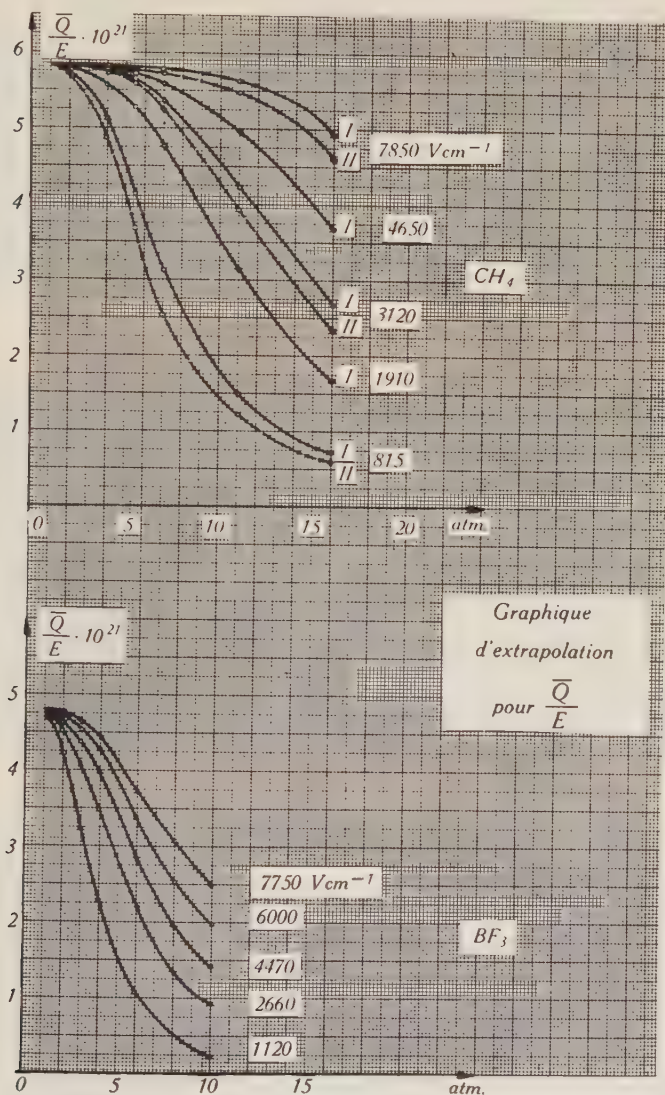 Q̅/E · 10²¹
6
5
4
3
2
1
I
II 7850 Vcm⁻¹
I 4650
CH₄
I
II 3120
I 1910
I
II 815
0 5 10 15 20 atm.
Q̅/E · 10²¹
5
4
3
2
1
Graphique
d'extrapolation
pour Q̅/E
7750 Vcm⁻¹
6000
BF₃
4470
2660
1120
0 5 10 15 20 atm.